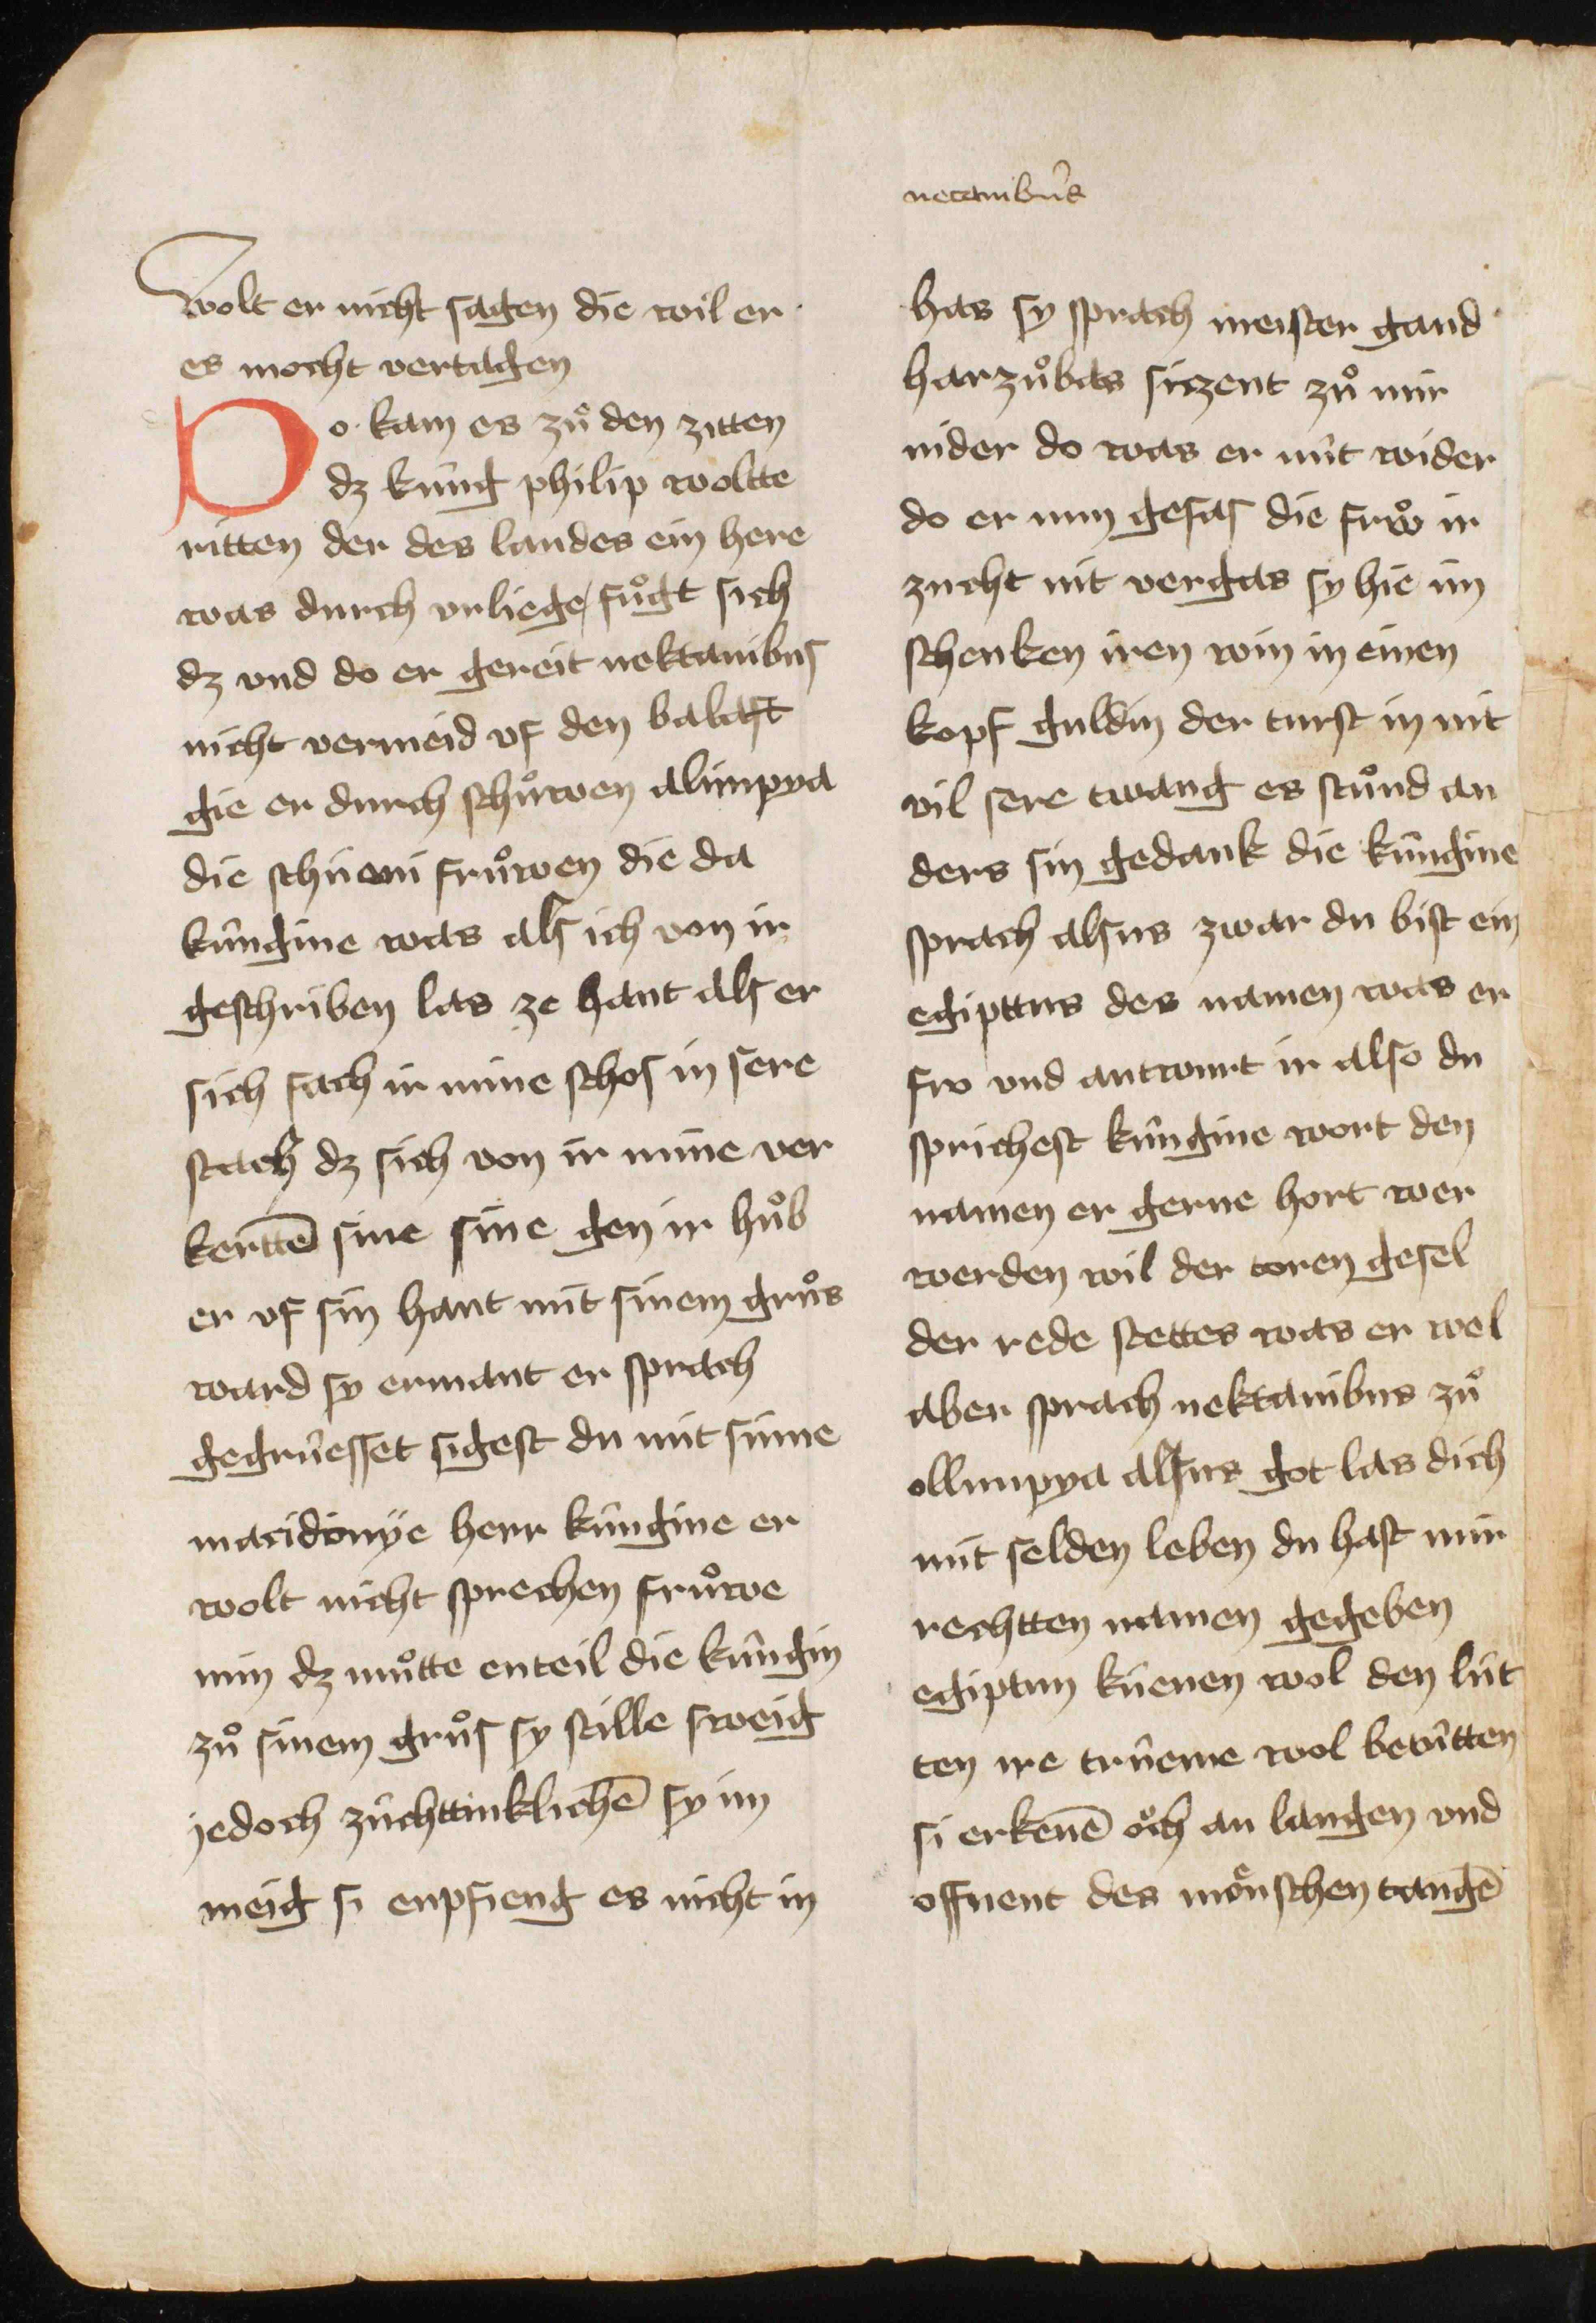 necanibus
wolt er nicht sagen die wil er
es mocht vertagen
Do kam es zuͦ den zitten
dz kúng philip woltte
ritten der des landes ein here
was durch urliege fuͦgt sich
dz vnd do er gereit nektanibus
nicht vermeid vf den balast
gie er durch schuͦwen alimpya
die schúeni fruͦwen die da
kúngine was als ich von ir
geschriben las ze hant als er
sich sach ir mine schos in sere
stach dz sich von ir mine ver
kerttē sine sine gen ir huͦb
er vf sin hant mit sinem gruͦs
ward sy ermant er sprach
gegrúesset sigest du mit sinne
macidonÿe herr kúngine er
wolt nicht sprechen fruͦwe
min dz muͦtte enteil die kúngin
zuͦ sinem gruͦs sy stille sweig
jedoch zúchttinklichē sy im
neig si enpfieng es nicht in
has sy sprach meister gand
harzuͦbas siczent zuͦ mir
nider do was er nút wider
do er nun gesas die frwͦ ir
zucht nit vergas sy hie im
schenken iren win in einen
kopf guldin der turst in nit
vil sere twang es stuͦnd an
ders sin gedank die kúngine
sprach alsus zwar du bist ein
egipttus des namen was er
fro vnd antwurt ir also du
sprichest kúngine wort den
namen er gerne hort wer
werden wil der toren gesel
der rede stettes was er wol
aber sprach nektanibus zuͦ
ollimpya alsus got las dich
mit selden leben du hast mir
rechtten namen gegeben
egiptun kúenen wol den lút
ten ire trúeme wol betútten
si erkenē oͧch an langen vnd
offnent des moͤnschen tangē